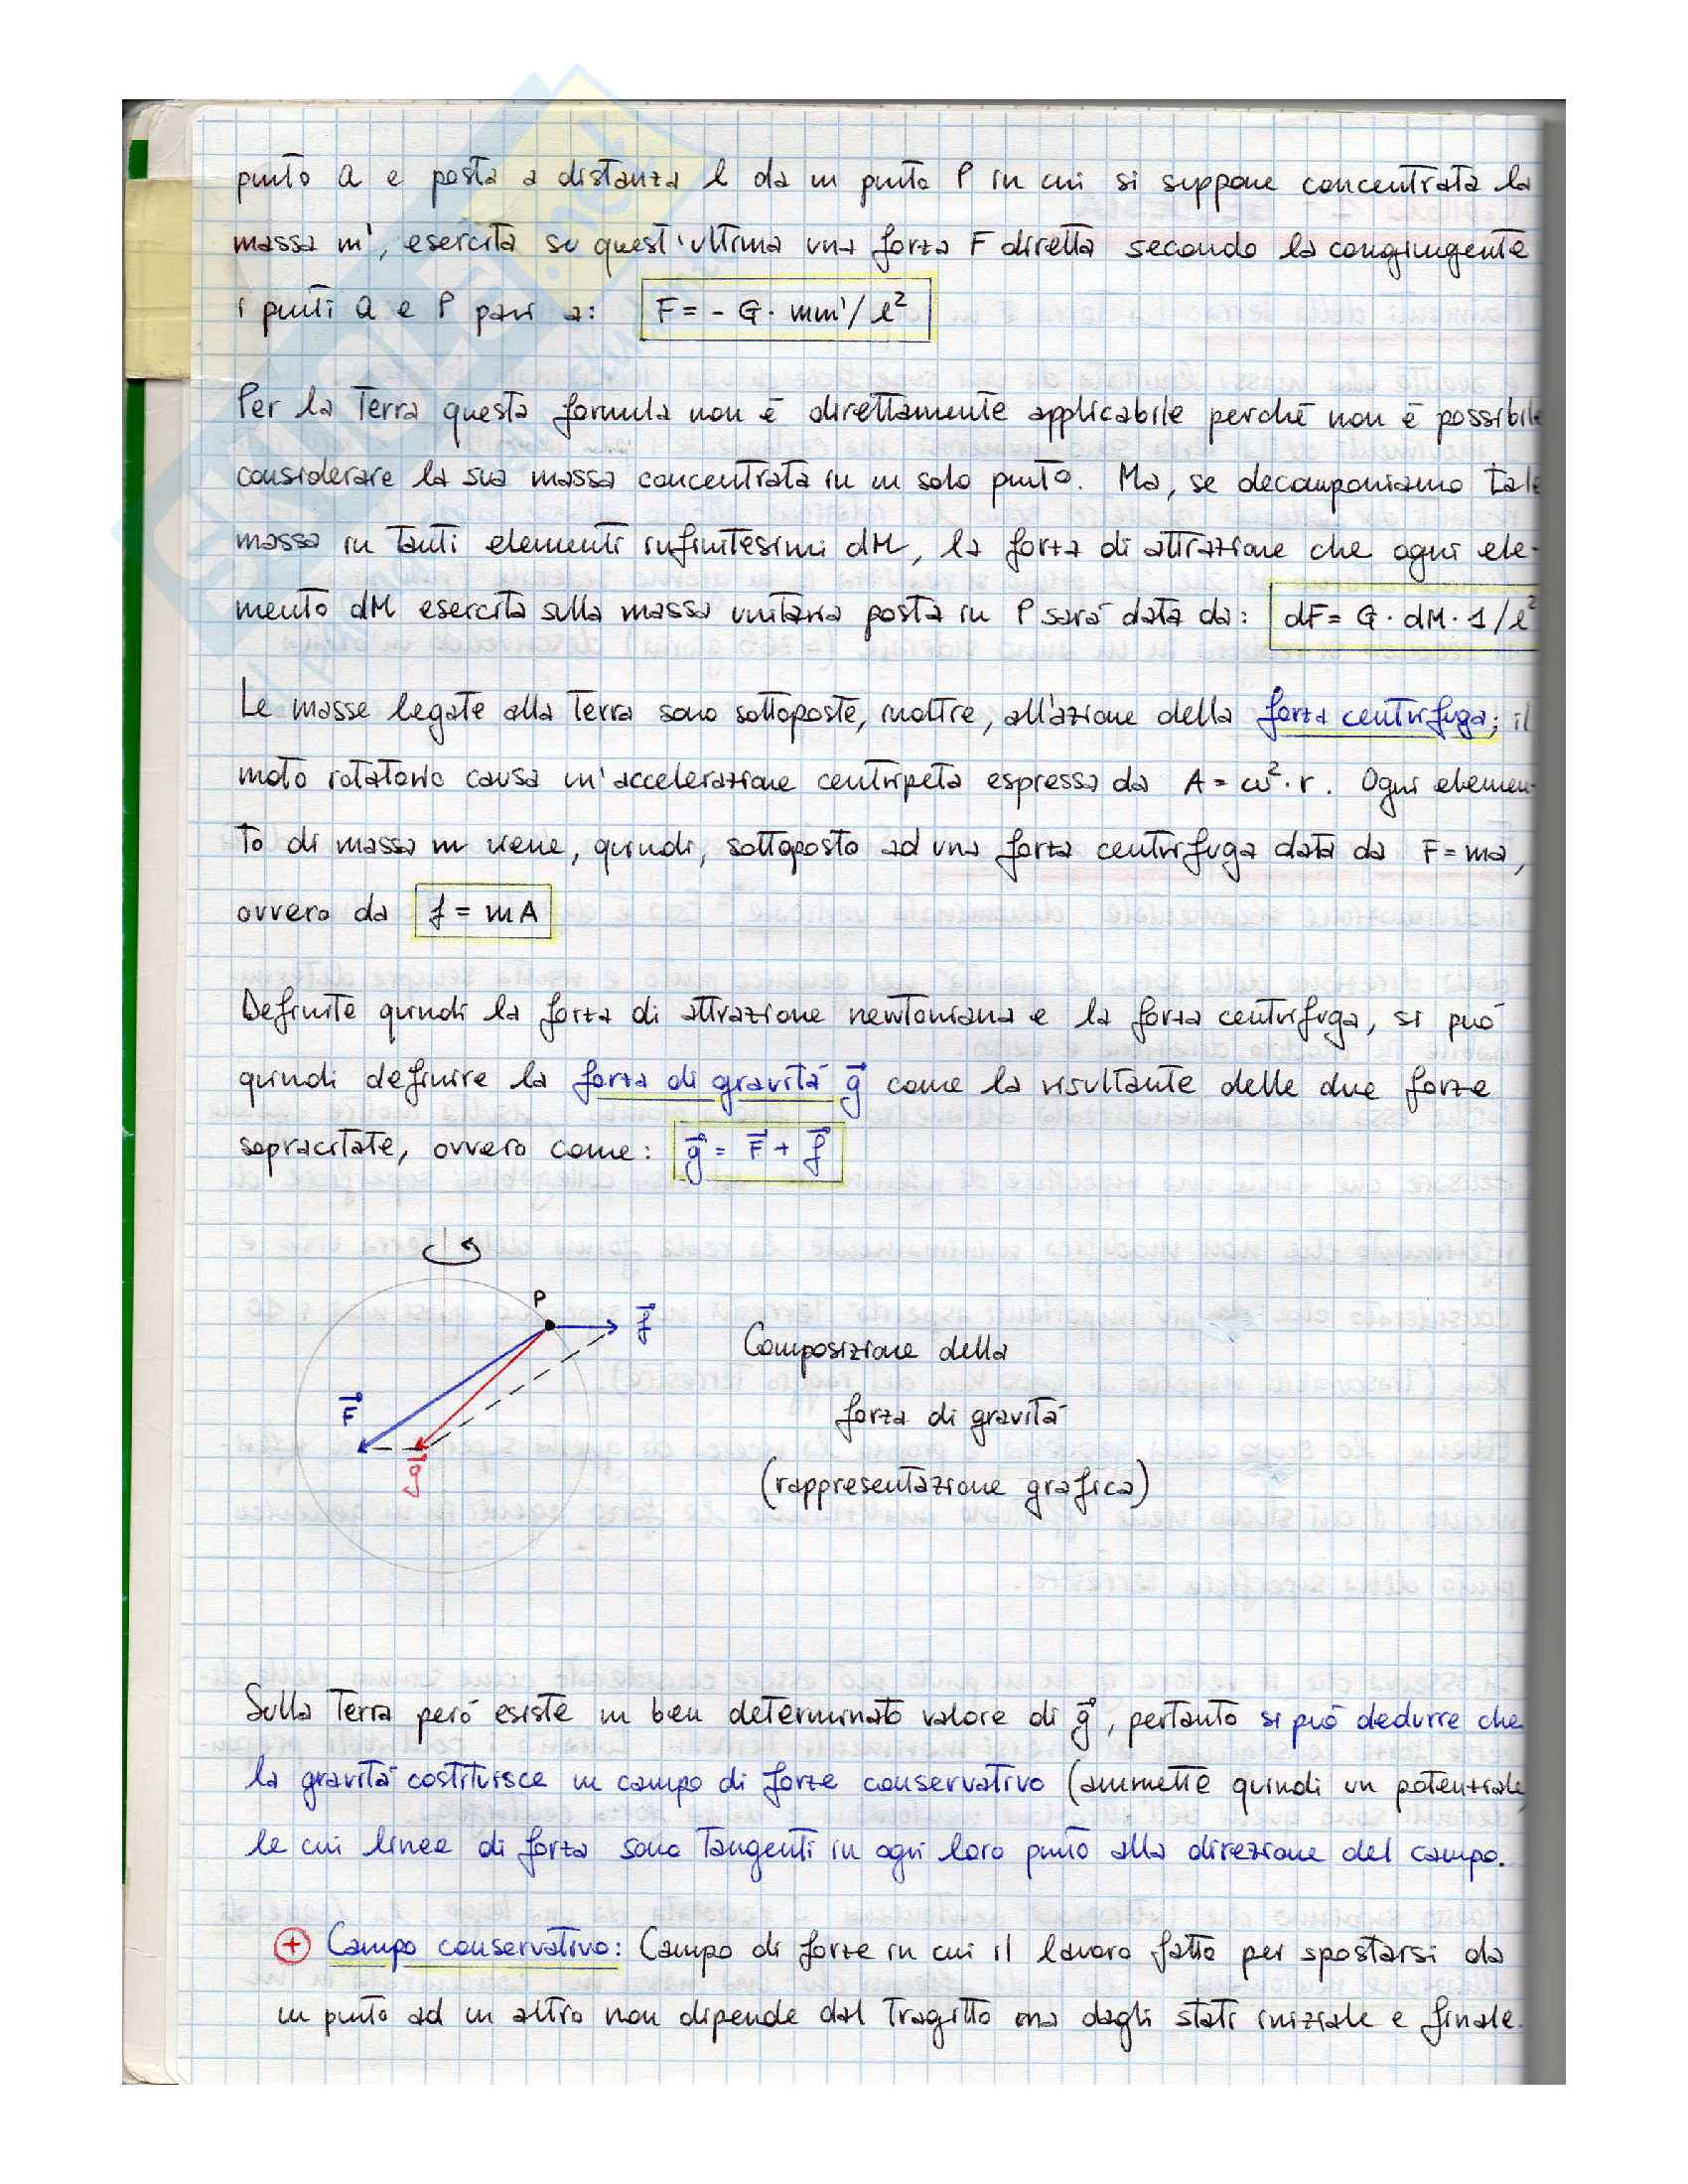 punto Q e posta a distanza l da un punto P in cui si suppone concentrata la
massa m', esercita su quest'ultima una forza F diretta secondo la congiungente
i punti Q e P pari a: F = - G · mm'/l²
Per la Terra questa formula non è direttamente applicabile perché non è possibile
considerare la sua massa concentrata in un solo punto. Ma, se decomponiamo tale
massa in tanti elementi infinitesimi dM, la forza di attrazione che ogni ele-
mento dM esercita sulla massa unitaria posta in P sarà data da: dF = G · dM · 1/l²
Le masse legate alla Terra sono sottoposte, inoltre, all'azione della forza centrifuga; il
moto rotatorio causa un'accelerazione centripeta espressa da A = ω² · r. Ogni elemen-
to di massa m viene, quindi, sottoposto ad una forza centrifuga data da F = ma,
ovvero da f = mA
Definite quindi la forza di attrazione newtoniana e la forza centrifuga, si può
quindi definire la forza di gravità g⃗ come la risultante delle due forze
sopracitate, ovvero come: g⃗ = F⃗ + f⃗
P
f⃗
F⃗
g⃗
Composizione della
forza di gravità
(rappresentazione grafica)
Sulla Terra però esiste un ben determinato valore di g⃗, pertanto si può dedurre che
la gravità costituisce un campo di forze conservativo (ammette quindi un potenziale)
le cui linee di forza sono tangenti in ogni loro punto alla direzione del campo.
+ Campo conservativo: Campo di forze in cui il lavoro fatto per spostarsi da
un punto ad un altro non dipende dal tragitto ma dagli stati iniziale e finale.